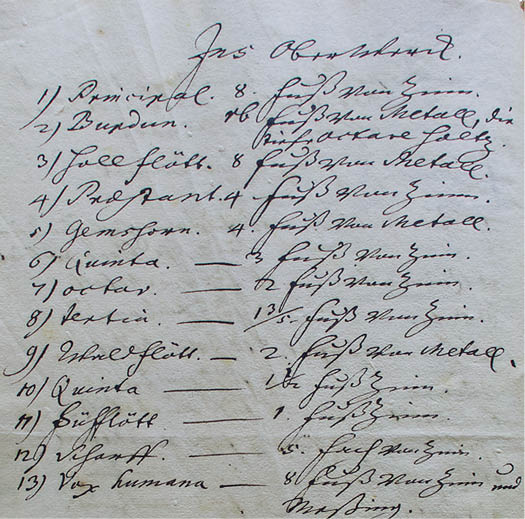 Ins OberWerck.
1) Principal. 8. Fuß Von Zinn.
2) Burdun. 16 Fuß Von Metall, die
tiefe octave Holtz.
3) Hollflött. 8 Fuß Von Metall.
4) Præstant. 4 Fuß Von Zinn.
5) Gemshorn. 4. Fuß Von Metall.
6) Quinta. — 3 Fuß Von Zinn.
7) octav. — 2 Fuß Von Zinn.
8) Tertia. — 13/5. Fuß Von Zinn.
9) Waldflött. — 2. Fuß Von Metall.
10) Quinta — 1½ Fuß Zinn.
11) Süfflött — 1. Fuß Zinn.
12) Scharff. — 5. fach Von Zinn.
13) Vox humana — 8 Fuß Von Zinn und
Meßing.